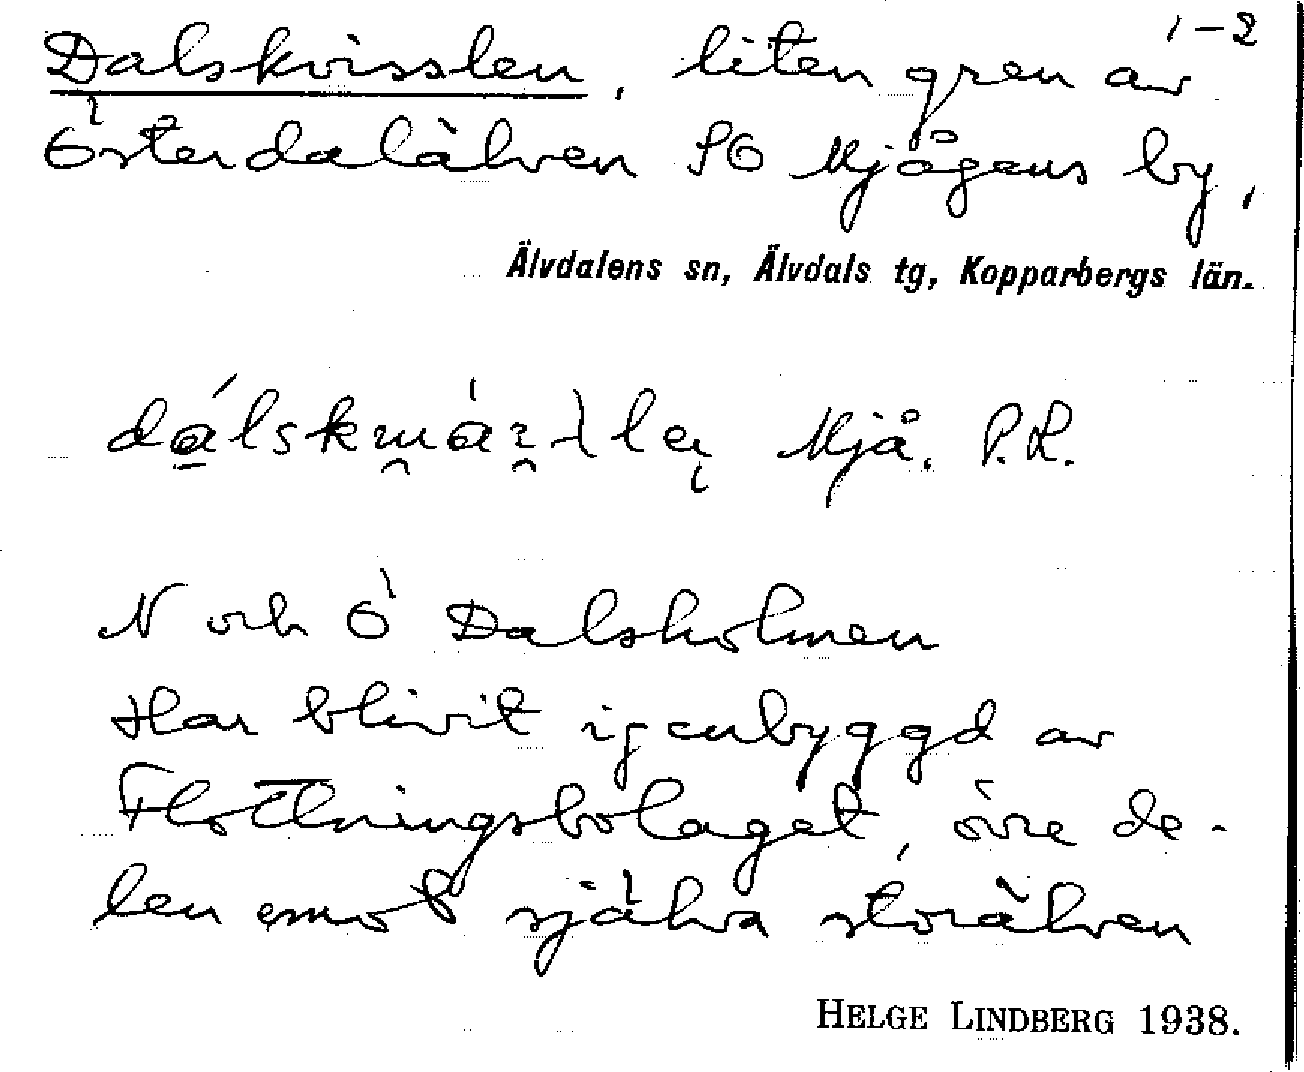 1-2
Dalskvisslen, liten gren av
Österdalälven SO Mjågens by,
Älvdalens sn, Älvdals tg, Kopparbergs län.
Mjå. P.L.
N och Ö Dalsholmen
Har blivit igenbyggd av
Flottningsbolaget, övre de-
len emot själva storälven
HELGE LINDBERG 1938.